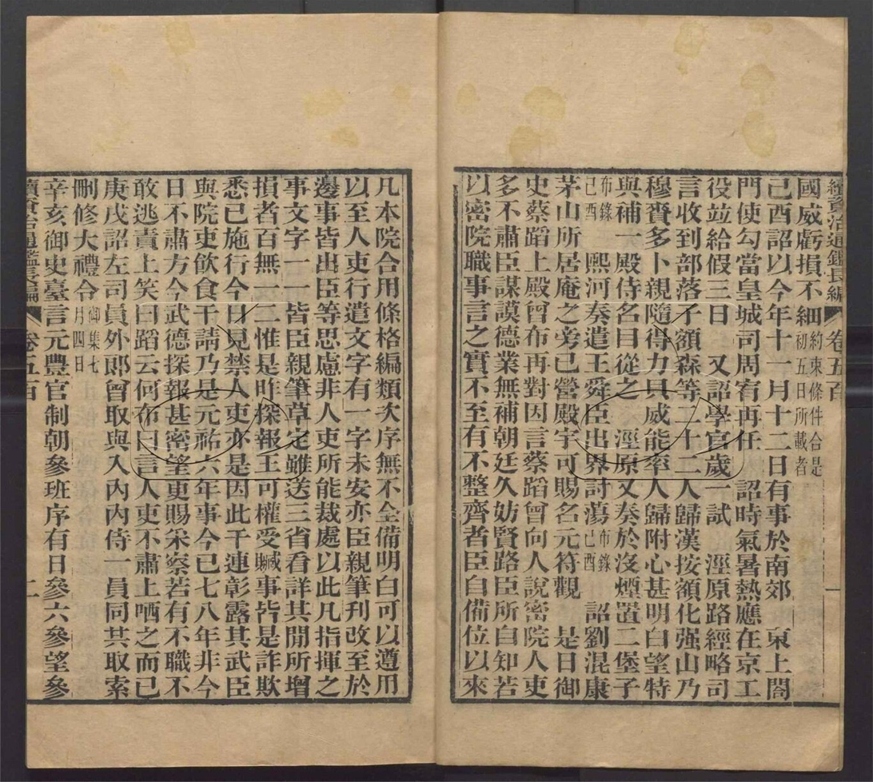 續資治通鑑長編 卷五百 一
國威虧損不細約束條件合是初五日所載者
己酉詔以今年十一月十二日有事於南郊 東上閤
門使勾當皇城司周宥再任 詔時氣暑熱應在京工
役竝給假三日 又詔學官歲一試 涇原路經略司
言收到部落子額森等二十二人歸漢按額化强山乃
穆賚多卜親隨得力具威能率人歸附心甚明白望特
與補一殿侍名目從之 涇原又奏於沒煙置二堡子
布錄己酉 熙河奏遣王舜臣出界討蕩布錄己酉 詔劉混康
茅山所居庵之旁已營殿宇可賜名元符觀 是日御
史蔡蹈上殿曾布再對因言蔡蹈曾向人說密院人吏
多不肅臣謀謨德業無補朝廷久妨賢路臣所自知若
以密院職事言之實不至有不整齊者臣自備位以來
凡本院合用條格編類次序無不全備明白可以遵用
以至人吏行遣文字有一字未安亦臣親筆刋改至於
邊事皆出臣等思慮非人吏所能裁處以此凡指揮之
事文字一一皆臣親筆草定雖送三省看詳其閒所增
損者百無一二惟是昨探報王可權受贓事皆是詐欺
悉已施行今日見禁人吏亦是因此干連彰露其武臣
與院吏飲食干請乃是元祐六年事今已七八年非今
日不肅方今武德探報甚密望更賜宋察若有不職不
敢逃責上笑曰蹈云何布曰言人吏不肅上哂之而已
庚戌詔左司員外郎曾取與入內內侍一員同共取索
刪修大禮令御集七月四日
辛亥御史臺言元豐官制朝參班序有日參六參望參
續資治通鑑長編 卷五百 二